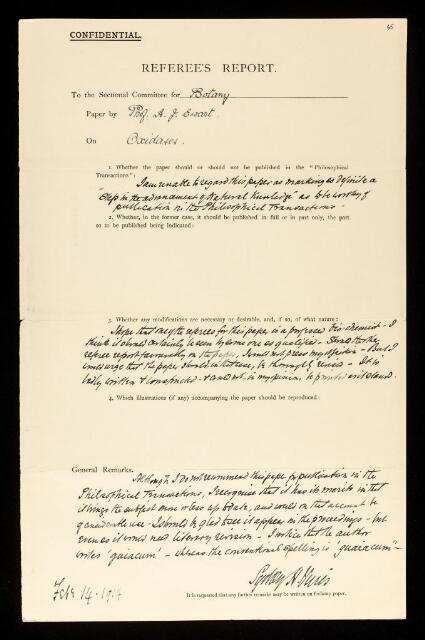 65
CONFIDENTIAL.
REFEREE'S REPORT.
To the Sectional Committee for Botany
Paper by Prof. A. J. Ewart.
On Oxidases.
1. Whether the paper should or should not be published in the "Philosophical
Transactions":
I am unable to regard this paper as marking as definite a
"step in the advancement of Natural Knowledge" as to be worthy of
publication in the Philosophical Transactions -
2. Whether, in the former case, it should be published in full or in part only, the part
so to be published being indicated:
3. Whether any modifications are necessary or desirable, and, if so, of what nature:
I hope that one of the referees for this paper is a professed bio-chemist - I
think it should certainly be seen by some one so qualified. Should the
referee report favourably on the paper, I would not press my objection - But I
would urge that the paper should in that case, be thoroughly revised - It is
badly written & constructed - & cannot, in my opinion, be printed as it stands.
4. Which illustrations (if any) accompanying the paper should be reproduced:
General Remarks.
Although I do not recommend this paper for publication in the
Philosophical Transactions, I recognise that it has its merits in that
it brings the subject more or less up to date, and would on that account be
of considerable use - I should be glad to see it appear in the proceedings - but
even so it would need literary revision - I notice that the author
writes 'guiacum' - whereas the conventional spelling is 'guaiacum' -
Sydney H. Vines
Feb 14. 1914
It is requested that any further remarks may be written on foolscap paper.